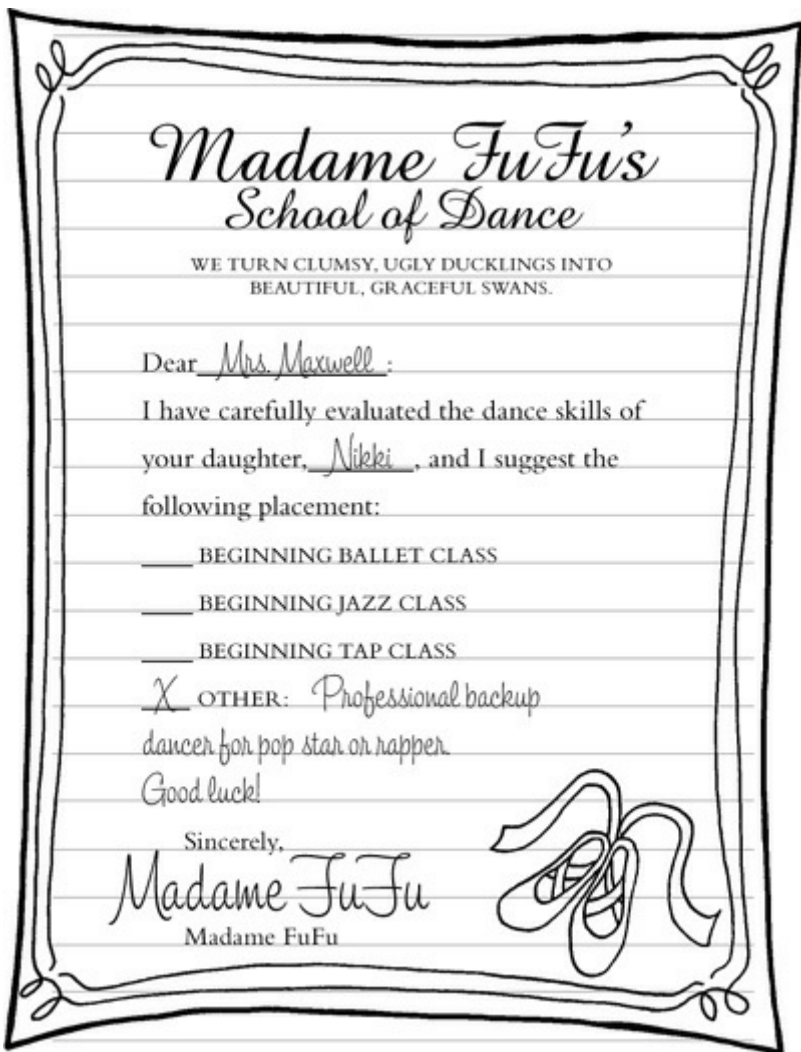 Madame FuFu's
School of Dance
WE TURN CLUMSY, UGLY DUCKLINGS INTO
BEAUTIFUL, GRACEFUL SWANS.
Dear Mrs. Maxwell:
I have carefully evaluated the dance skills of
your daughter, Nikki, and I suggest the
following placement:
____ BEGINNING BALLET CLASS
____ BEGINNING JAZZ CLASS
____ BEGINNING TAP CLASS
X OTHER: Professional backup
dancer for pop star or rapper.
Good luck!
Sincerely,
Madame FuFu
Madame FuFu